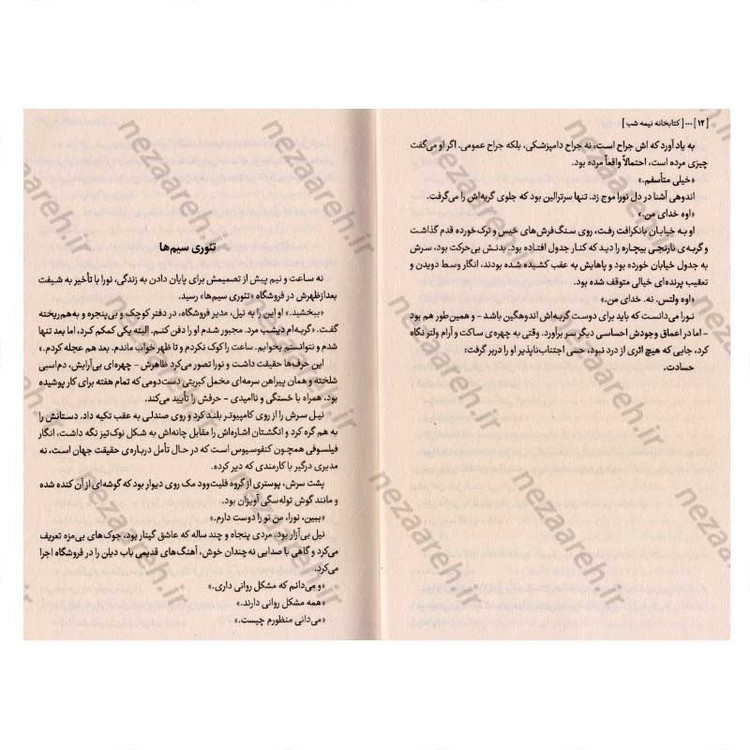 [ ۱۲ ] ••• [ کتابخانه نیمه شب ]
به یاد آورد که اش جراح است، نه جراح دامپزشکی، بلکه جراح عمومی. اگر او می‌گفت
چیزی مرده است، احتمالاً واقعاً مرده بود.
«خیلی متأسفم.»
اندوهی آشنا در دل نورا موج زد. تنها سرترالین بود که جلوی گریه‌اش را می‌گرفت.
«اوه خدای من.»
او به خیابان بانکرافت رفت، روی سنگ‌فرش‌های خیس و ترک‌خورده قدم گذاشت
و گربه‌ی نارنجی بیچاره را دید که کنار جدول افتاده بود. بدنش بی‌حرکت بود، سرش
به جدول خیابان خورده بود و پاهایش به عقب کشیده شده بودند، انگار وسط دویدن و
تعقیب پرنده‌ای خیالی متوقف شده بود.
«اوه ولتس. نه. خدای من.»
نورا می‌دانست که باید برای دوست گربه‌اش اندوهگین باشد - و همین‌طور هم بود
- اما در اعماق وجودش احساسی دیگر سر برآورد. وقتی به چهره‌ی ساکت و آرام ولتر نگاه
کرد، جایی که هیچ اثری از درد نبود، حسی اجتناب‌ناپذیر او را دربر گرفت:
حسادت.
تئوری سیم‌ها
نه ساعت و نیم پیش از تصمیمش برای پایان دادن به زندگی، نورا با تأخیر به شیفت
بعدازظهرش در فروشگاه «تئوری سیم‌ها» رسید.
«ببخشید.» او این را به نیل، مدیر فروشگاه، در دفتر کوچک و بی‌پنجره و به‌هم‌ریخته
گفت. «گربه‌ام دیشب مرد. مجبور شدم او را دفن کنم. البته یکی کمکم کرد، اما بعد تنها
شدم و نتوانستم بخوابم. ساعت را کوک نکردم و تا ظهر خواب ماندم. بعد هم عجله کردم.»
این حرف‌ها حقیقت داشت و نورا تصور می‌کرد ظاهرش - چهره‌ی بی‌آرایش، دم‌اسبی
شلخته و همان پیراهن سرمه‌ای مخمل کبریتی دست‌دومی که تمام هفته برای کار پوشیده
بود، همراه با خستگی و ناامیدی - حرفش را تأیید می‌کند.
نیل سرش را از روی کامپیوتر بلند کرد و روی صندلی به عقب تکیه داد. دستانش را
به هم گره کرد و انگشتان اشاره‌اش را مقابل چانه‌اش به شکل نوک‌تیز نگه داشت، انگار
فیلسوفی همچون کنفوسیوس است که در حال تأمل درباره‌ی حقیقت جهان است، نه
مدیری درگیر با کارمندی که دیر کرده.
پشت سرش، پوستری از گروه فلیت‌وود مک روی دیوار بود که گوشه‌ای از آن کنده شده
و مانند گوش توله‌سگی آویزان بود.
«ببین، نورا، من تو را دوست دارم.»
نیل بی‌آزار بود. مردی پنجاه و چند ساله که عاشق گیتار بود، جوک‌های بی‌مزه تعریف
می‌کرد و گاهی با صدایی نه‌چندان خوش، آهنگ‌های قدیمی باب دیلن را در فروشگاه اجرا
می‌کرد.
«و می‌دانم که مشکل روانی داری.»
«همه مشکل روانی دارند.»
«می‌دانی منظورم چیست.»
nezaareh.ir
nezaareh.ir
nezaareh.ir
nezaareh.ir
nezaareh.ir
nezaareh.ir
nezaareh.ir
nezaareh.ir